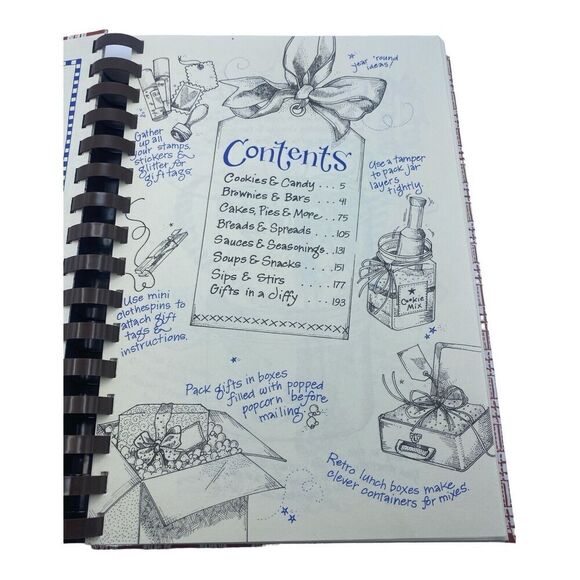 year 'round
ideas!
Gather
up all
your stamps,
stickers &
glitter for
gift tags.
Contents
Cookies & Candy . . . 5
Brownies & Bars . . . 41
Cakes, Pies & More . . 75
Breads & Spreads . . . 105
Sauces & Seasonings . . 131
Soups & Snacks . . . . 151
Sips & Stirs . . . . 177
Gifts in a Jiffy . . . 193
Use a tamper
to pack jar
layers
tightly.
Cookie
Mix
Use mini
clothespins to
attach gift
tags &
instructions.
Pack gifts in boxes
filled with popped
popcorn before
mailing.
Retro lunch boxes make
clever containers for mixes.